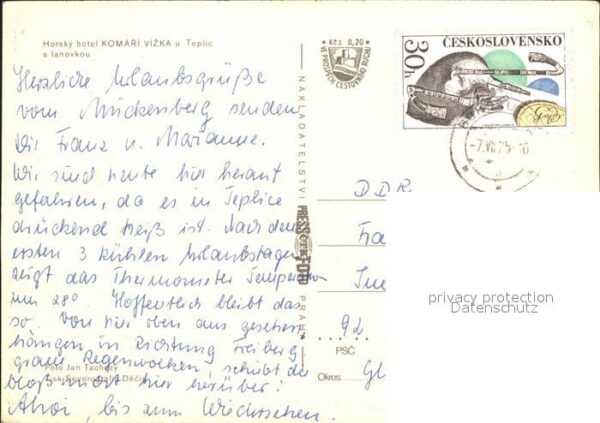 Horský hotel KOMÁŘÍ VÍŽKA u Teplic
s lanovkou
Herzliche Urlaubsgrüße
vom Mückenberg senden
Dir Franz u. Marianne.
Wir sind heute hier herauf
gefahren, da es in Teplice
drückend heiß ist. Nach den
ersten 3 kühlen Urlaubstagen
zeigt das Thermometer Temperaturen
um 28°. Hoffentlich bleibt das
so. Von hier oben aus gesehen
hängen in Richtung Freiberg
graue Regenwolken, schiebt die
bloß nicht hier herüber!
Ahoi, bis zum Wiedersehen.
Foto Jan Tachezy
Tisk Severografia Děčín
Kčs 0,20
VE PROSPĚCH CESTOVNÍHO RUCHU
NAKLADATELSTVÍ PRESSFOTO PRAHA
ČESKOSLOVENSKO
30h
-7.VII.75-16
DDR
Fra
92
PSČ
Okres:
privacy protection
Datenschutz